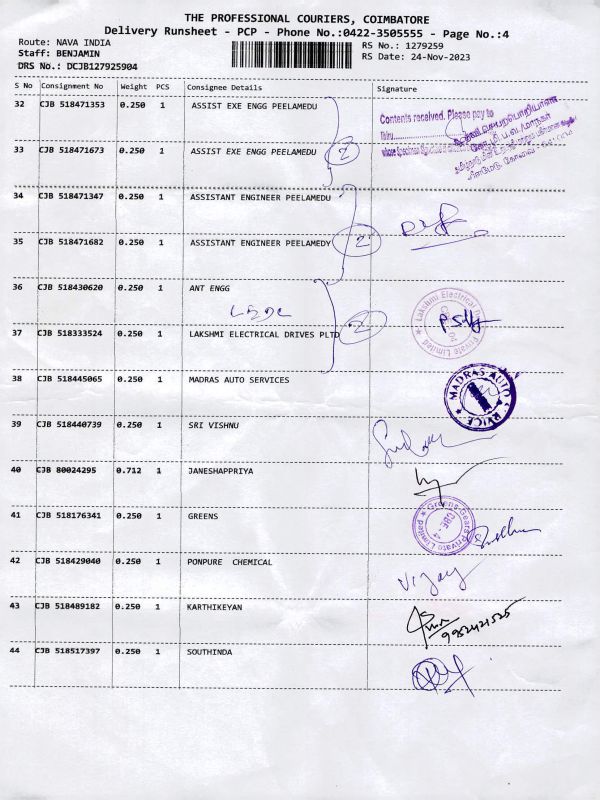 THE PROFESSIONAL COURIERS, COIMBATORE
Delivery Runsheet - PCP - Phone No.:0422-3505555 - Page No.:4
Route: NAVA INDIA
RS No.: 1279259
Staff: BENJAMIN
RS Date: 24-Nov-2023
DRS No.: DCJB127925904
S No Consignment No Weight PCS Consignee Details Signature
32 CJB 518471353 0.250 1 ASSIST EXE ENGG PEELAMEDU
Contents received. Please pay to
33 CJB 518471673 0.250 1 ASSIST EXE ENGG PEELAMEDU 2
34 CJB 518471347 0.250 1 ASSISTANT ENGINEER PEELAMEDU
35 CJB 518471682 0.250 1 ASSISTANT ENGINEER PEELAMEDY 2
36 CJB 518430620 0.250 1 ANT ENGG
Lakshmi Electrical Private Limited
37 CJB 518333524 0.250 1 LAKSHMI ELECTRICAL DRIVES PLTD 2
38 CJB 518445065 0.250 1 MADRAS AUTO SERVICES
MADRAS AUTO SERVICE
39 CJB 518440739 0.250 1 SRI VISHNU
40 CJB 80024295 0.712 1 JANESHAPPRIYA
41 CJB 518176341 0.250 1 GREENS
Greens Gears Private Limited
CBE. 4
42 CJB 518429040 0.250 1 PONPURE CHEMICAL
Vijay
43 CJB 518489182 0.250 1 KARTHIKEYAN
9952421525
44 CJB 518517397 0.250 1 SOUTHINDA